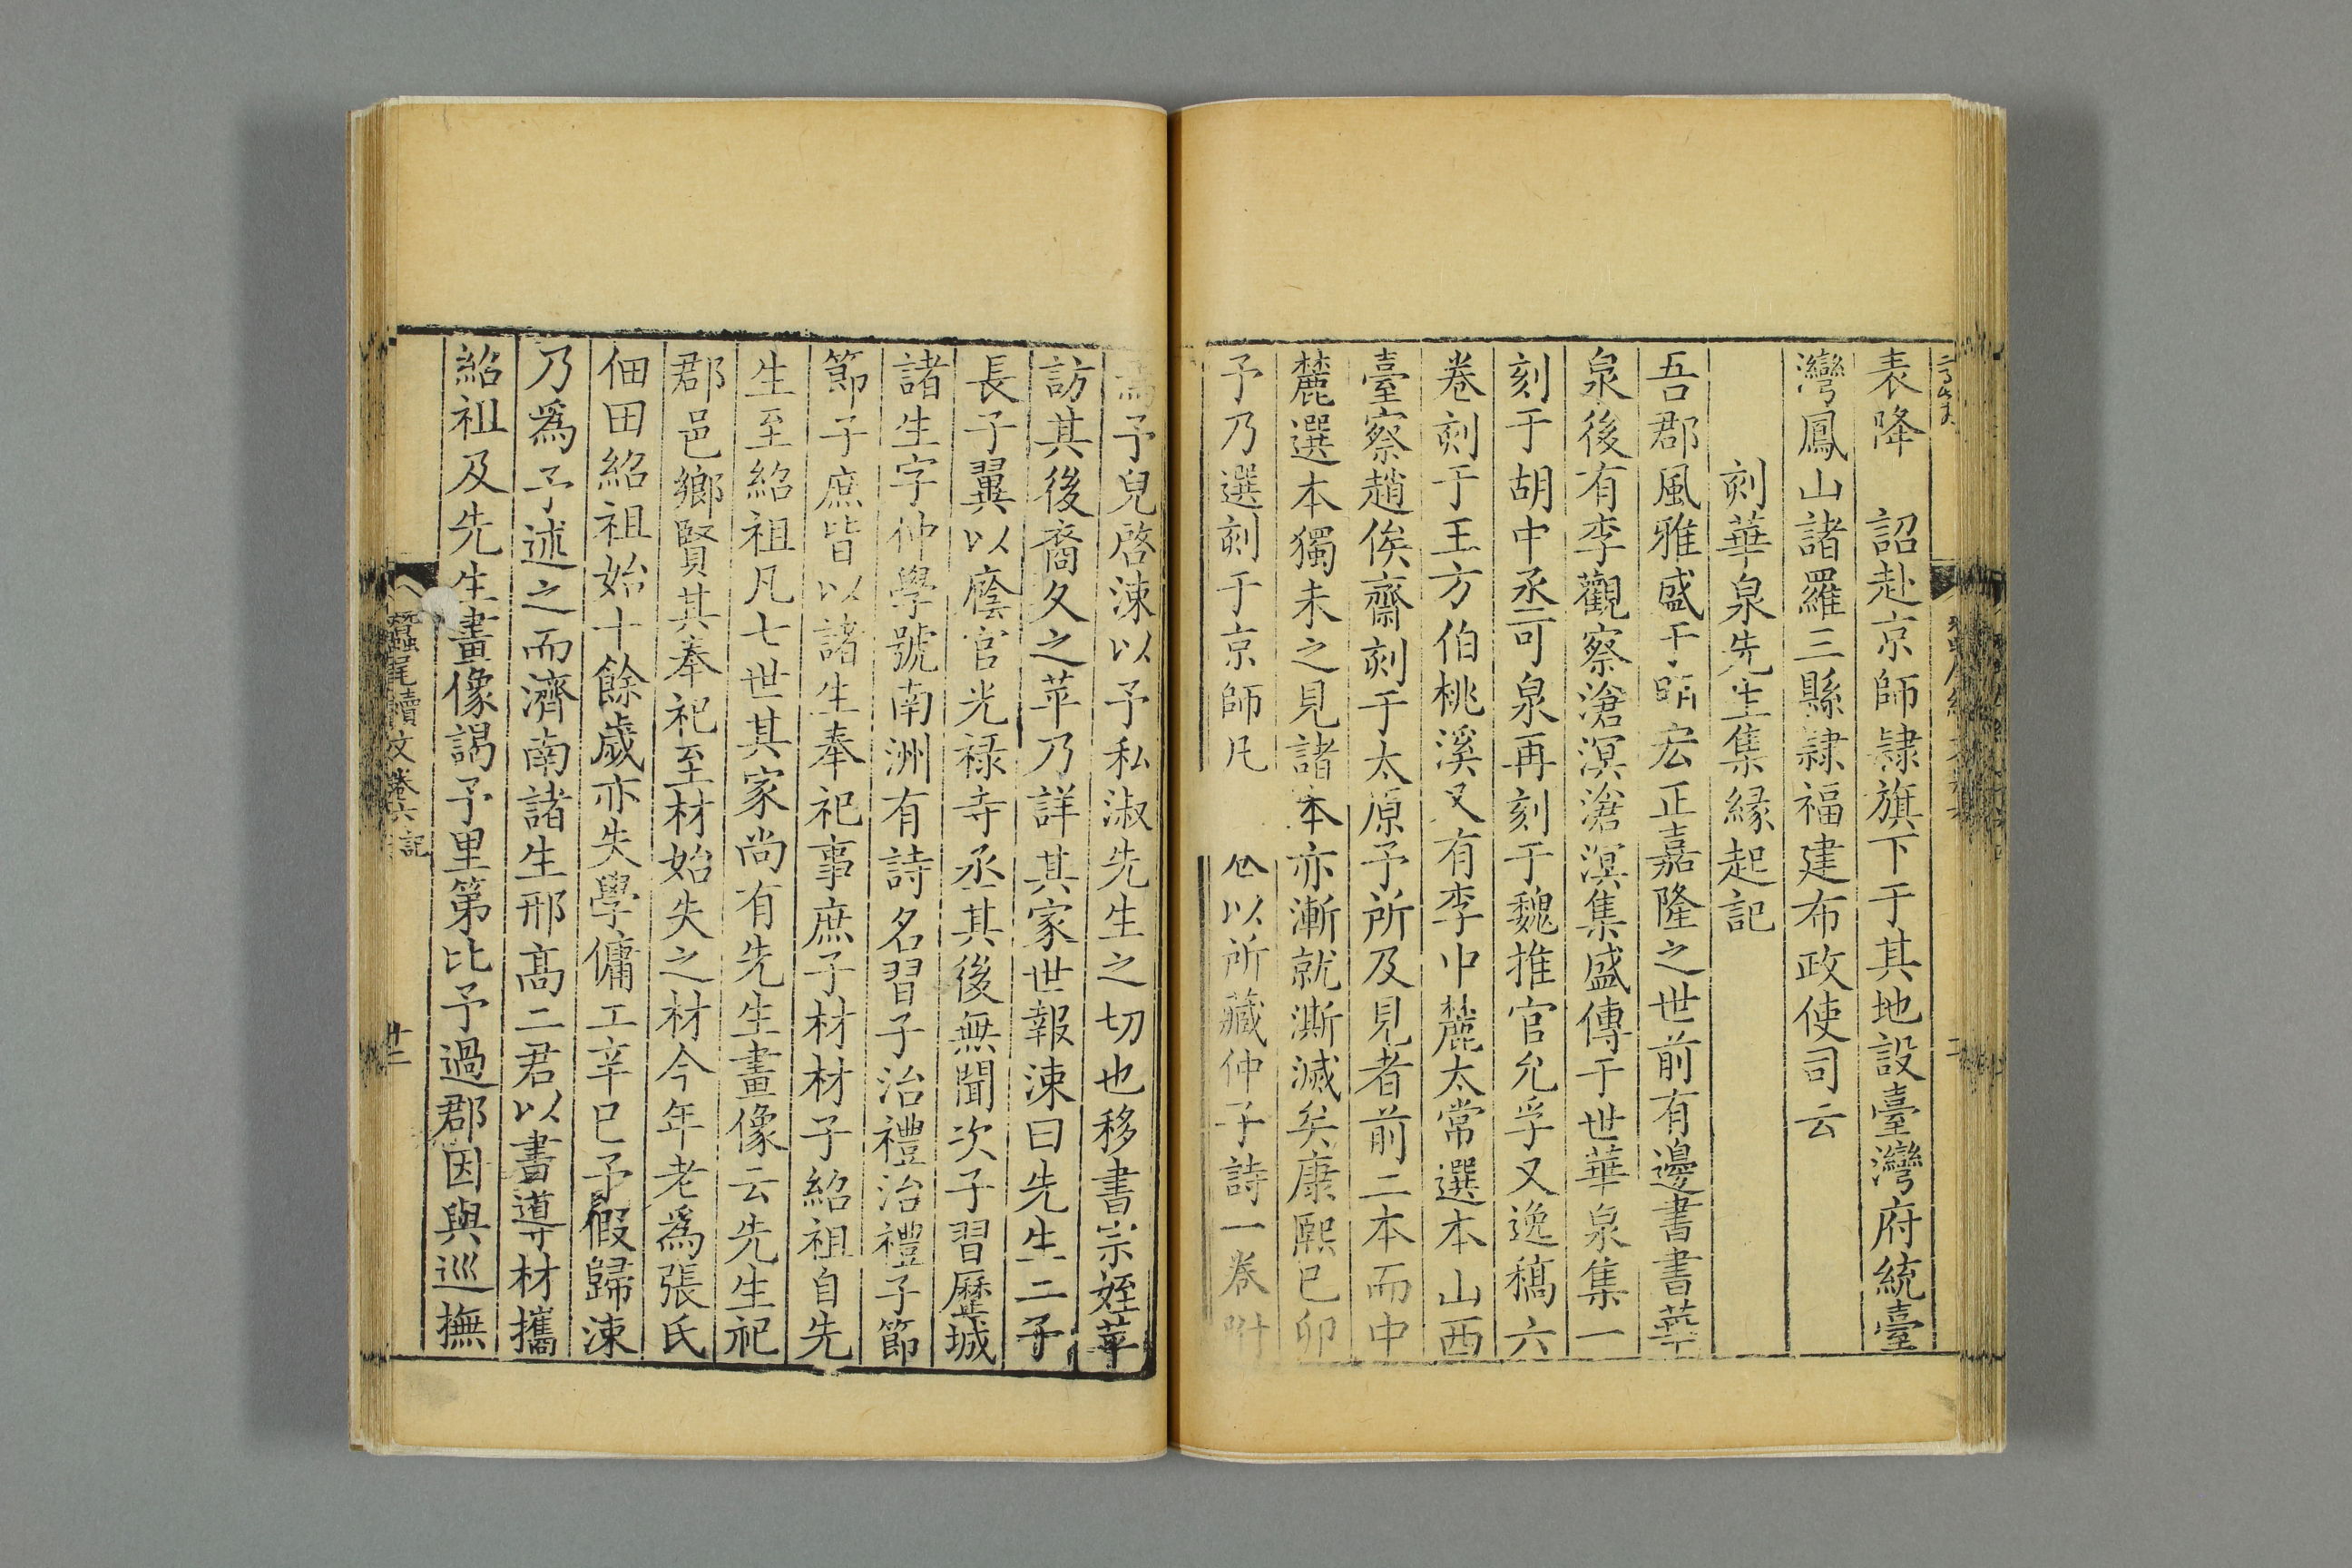 表降　詔赴京師隸旗下于其地設臺灣府統臺
灣鳳山諸羅三縣隸福建布政使司云
刻華泉先生集緣起記
吾郡風雅盛于明宏正嘉隆之世前有邊尚書華
泉後有李觀察滄溟滄溟集盛傳于世華泉集一
刻于胡中丞可泉再刻于魏推官允孚又逸稿六
卷刻于王方伯桃溪又有李中麓太常選本山西
臺察趙俟齋刻于太原予所及見者前二本而中
麓選本獨未之見諸本亦漸就澌滅矣康熙己卯
予乃選刻于京師凡　以所藏仲子詩一卷附
焉予兒啓涑以予私淑先生之切也移書宗姪苹
訪其後裔久之苹乃詳其家世報涑曰先生二子
長子翼以廕官光祿寺丞其後無聞次子習歷城
諸生字仲學號南洲有詩名習子治禮治禮子節
節子庶皆以諸生奉祀事庶子材材子紹祖自先
生至紹祖凡七世其家尚有先生畫像云先生祀
郡邑鄉賢其奉祀至材始失之材今年老爲張氏
佃田紹祖始十餘歲亦失學傭工辛巳予假歸涑
乃爲予述之而濟南諸生邢高二君以書導材攜
紹祖及先生畫像謁予里第比予過郡因與巡撫
蠶尾續文卷六 記
廿二